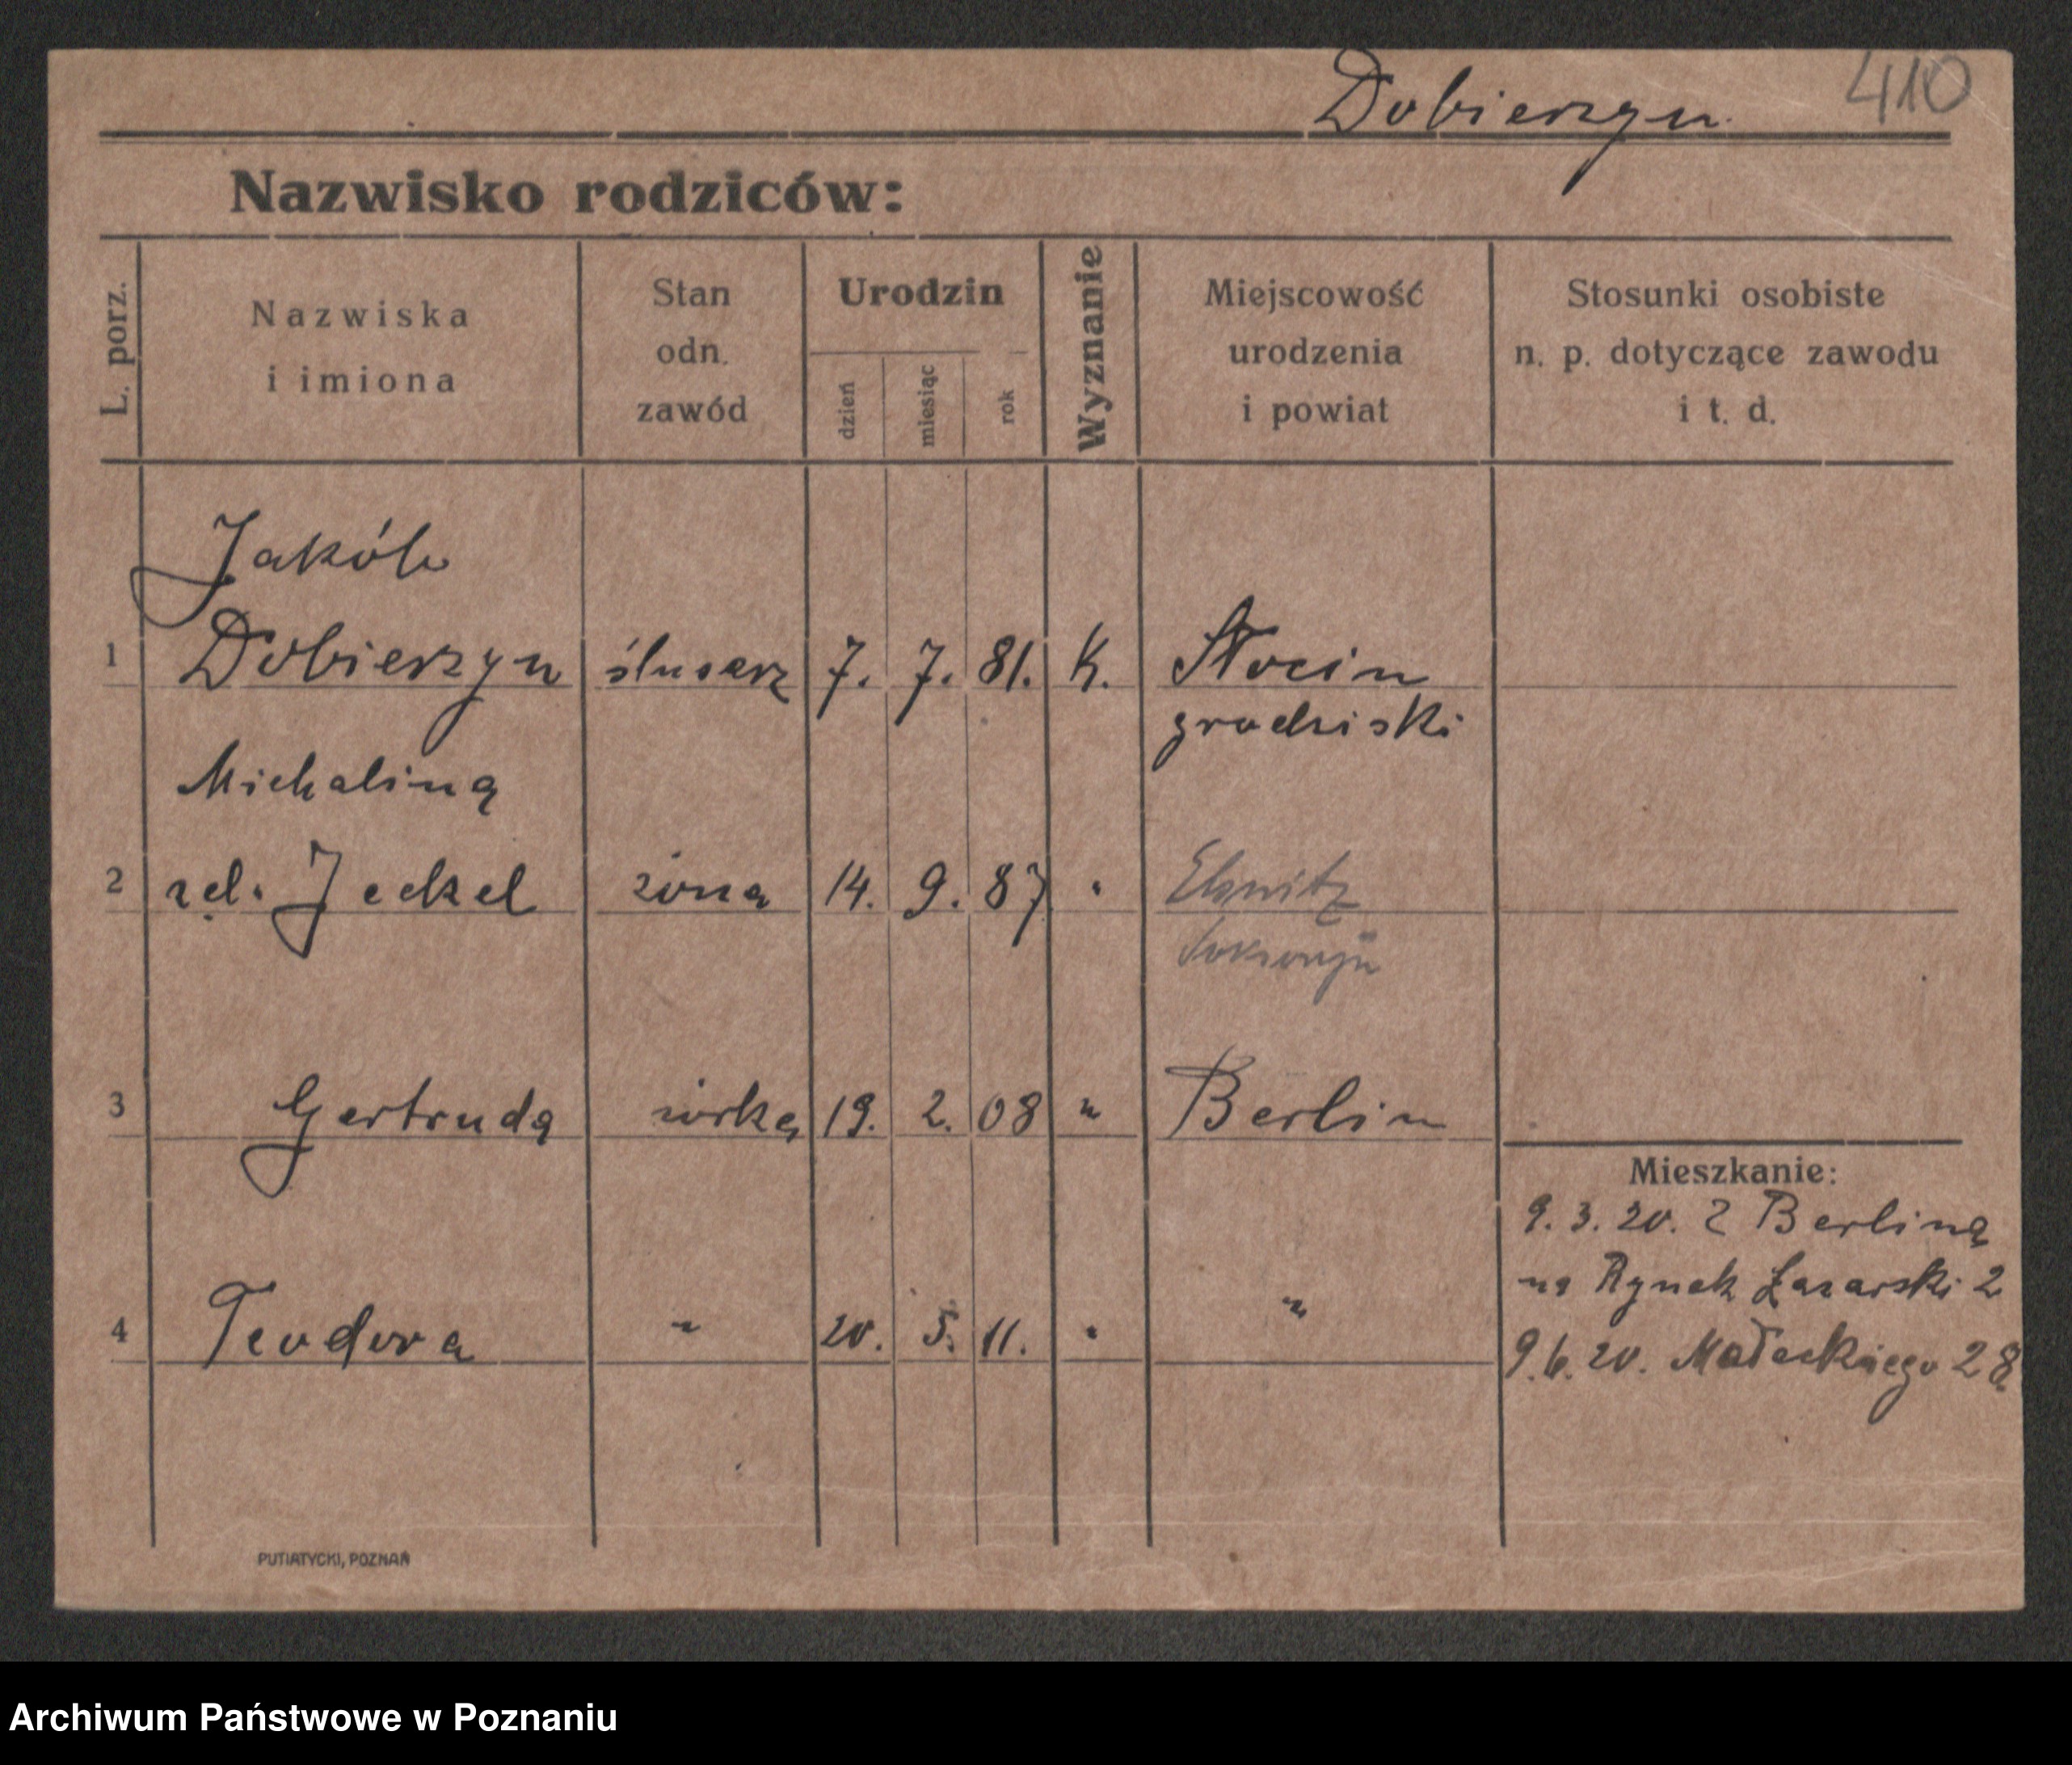 Dobierzyn.
410
Nazwisko rodziców:
L. porz.
Nazwiska
i imiona
Stan
odn.
zawód
Urodzin
dzień
miesiąc
rok
Wyznanie
Miejscowość
urodzenia
i powiat
Stosunki osobiste
n. p. dotyczące zawodu
i t. d.
Jakób
1 Dobierzyn ślusarz 7. 7. 81. K. Słocin
grodziski
Michalina
2 żona 14. 9. 87 "
Jeckel
3 Gertruda córka 19. 2. 08 " Berlin
4 Teodora " 20. 5. 11. " "
Mieszkanie:
9. 3. 20. Z Berlina
na Rynek Łazarski 2
9. 6. 20. Małeckiego 28
PUTIATYCKI, POZNAŃ
Archiwum Państwowe w Poznaniu